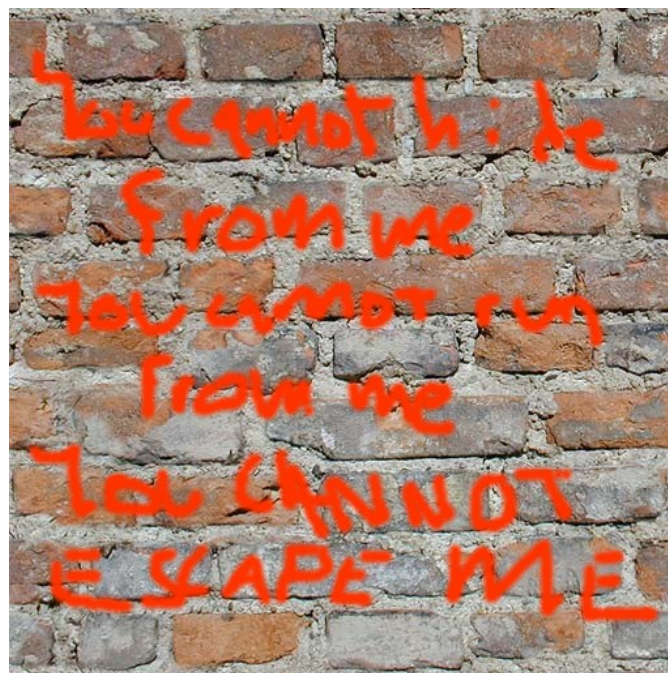 You cannot hide
from me
You cannot run
from me
You CANNOT
ESCAPE ME